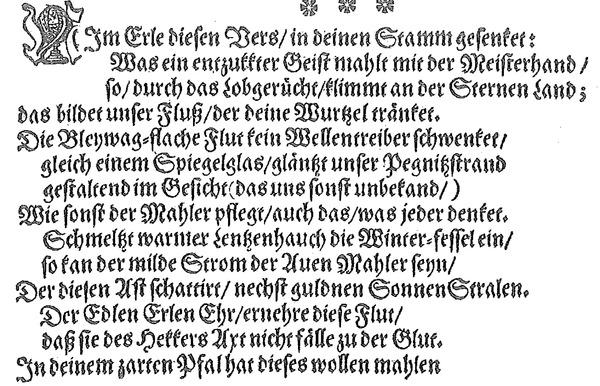 NIm Erle diesen Vers/ in deinen Stamm gesenket:
Was ein entzukkter Geist mahlt mit der Meisterhand /
so/ durch das Lobgerücht/klimmt an der Sternen Land;
das bildet unser Fluß/der deine Wurtzel tränket.
Die Bleywag-flache Flut kein Wellentreiber schwenket/
gleich einem Spiegelglas/gläntzt unser Pegnitzstrand
gestaltend im Gesicht(das uns sonst unbekand/)
Wie sonst der Mahler pflegt/auch das/was jeder denket.
Schmeltzt warmer Lentzenhauch die Winter-fessel ein/
so kan der milde Strom der Auen Mahler seyn/
Der diesen Ast schattirt/ nechst guldnen SonnenStralen.
Der Edlen Erlen Ehr/ernehre diese Flut/
daß sie des Hekkers Axt nicht fälle zu der Glut.
In deinem zarten Pfal hat dieses wollen mahlen